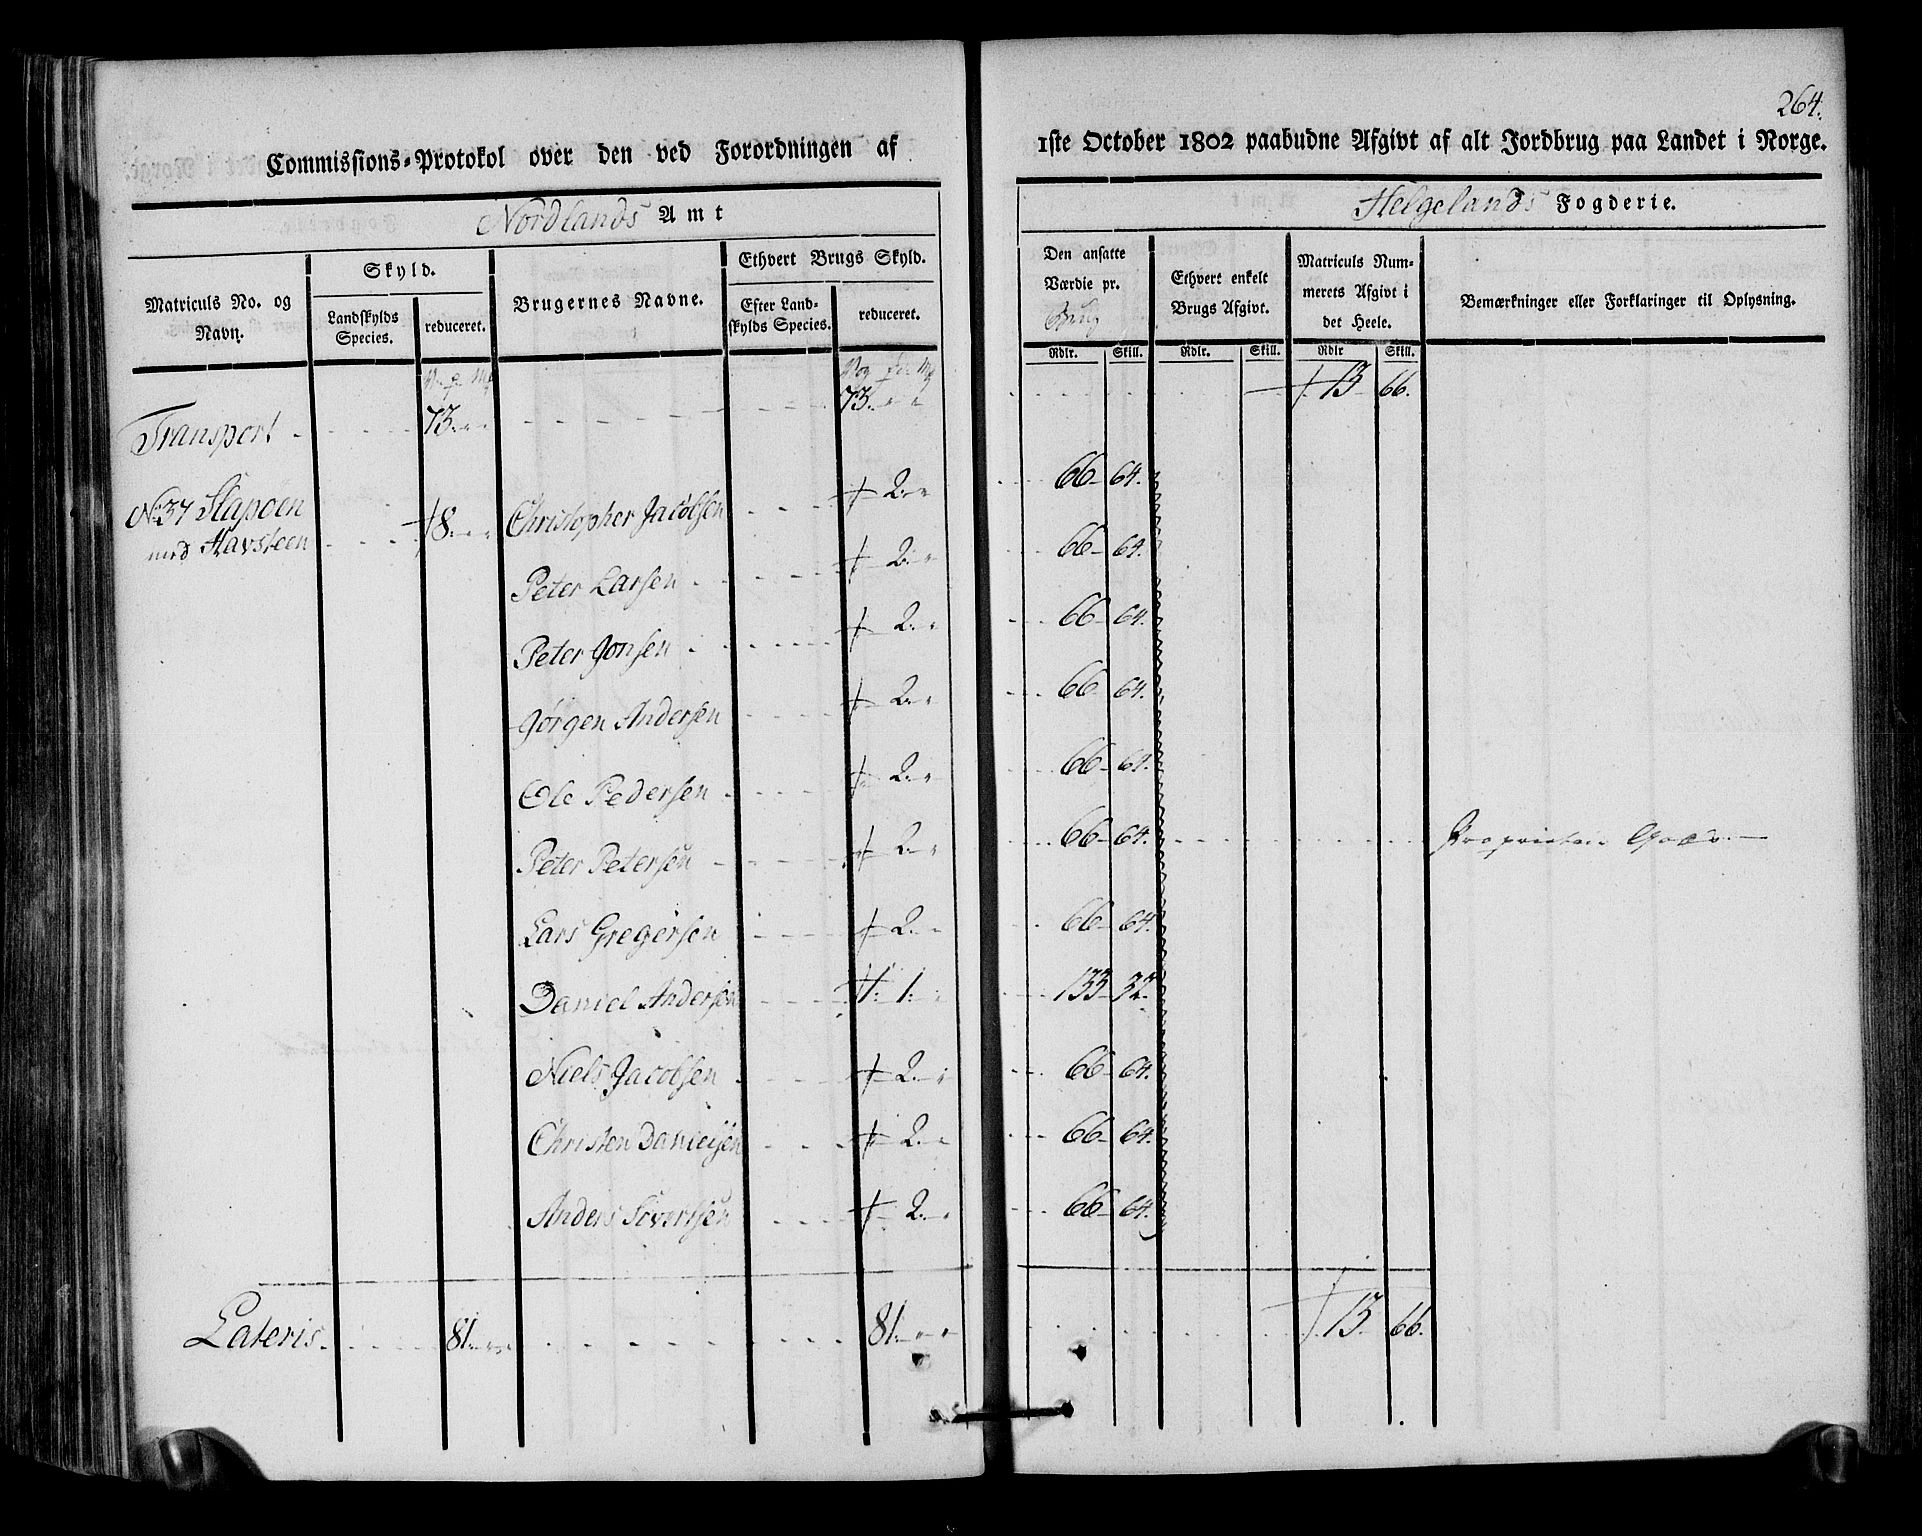 264.
Commissions-Protokol over den ved Forordningen af
1ste October 1802 paabudne Afgivt af alt Jordbrug paa Landet i Norge.
Nordlands Amt
Helgelands Fogderie.
Matriculs No. og Navn.
Skyld.
Landskylds Species.
reduceret.
Brugernes Navne.
Ethvert Brugs Skyld.
Efter Landskylds Species.
reduceret.
Den ansatte Værdie pr. Brug
Ethvert enkelt Brugs Afgivt.
Matriculs Nummerets Afgivt i det Heele.
Bemærkninger eller Forklaringer til Oplysning.
Rdlr. Skill. Rdlr. Skill. Rdlr Skill.
Transport 73 73 13 66.
No 37 Slapøen
med Havsteen 8 Christopher Jacobsen 2 66 64.
Peter Larsen 2 66 64.
Peter Jonsen 2 66 64.
Jørgen Andersen 2 66 64.
Ole Pedersen 2 66 64.
Peter Petersen 2 66 64. Proprietair Gods
Lars Gregersen 2 66 64.
Daniel Andersen 1 133 32.
Niels Jacobsen 2 66 64.
Christen Danielsen 2 66 64.
Anders Siversen 2 66 64.
Lateris 81 81 13 66.